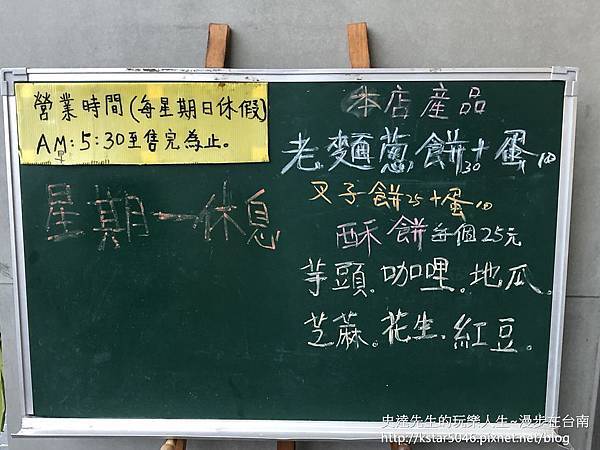 營業時間(每星期日休假)
AM:5:30至售完為止。
早
星期一休息
本店產品
老麵蔥餅30+蛋10
叉子餅25+蛋10
酥餅每個25元
芋頭。咖哩。地瓜。
芝蔴。花生.紅豆。
史達先生的玩樂人生~漫步在台南
http://kstar5046.pixnet.net/blog